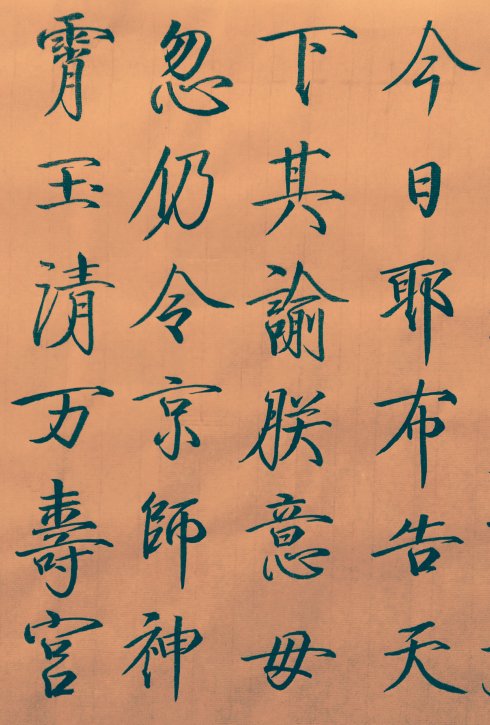 今日耶布告天
下其諭朕意毋
忽仍令京師神
霄玉清万壽宮